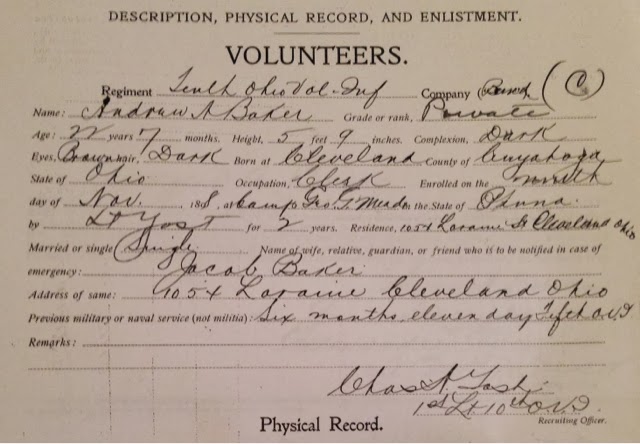 DESCRIPTION, PHYSICAL RECORD, AND ENLISTMENT.
VOLUNTEERS.
Regiment Tenth Ohio Vol. Inf Company (Band) (C)
Name: Andrew A Baker Grade or rank, Private
Age: 22 years 7 months. Height, 5 feet 9 inches. Complexion, Dark
Eyes, Brown hair, Dark Born at Cleveland County of Cuyahoga
State of Ohio Occupation, Clerk Enrolled on the
day of Nov. 1898, at Camp Geo. G. Meade in the State of Penna.
by Lt Yost for 2 years. Residence, 1054 Loraine St Cleveland Ohio
Married or single Single Name of wife, relative, guardian, or friend who is to be notified in case of
emergency: Jacob Baker
Address of same: 1054 Loraine Cleveland Ohio
Previous military or naval service (not militia): Six months eleven day Fifth O.V.I
Remarks:
Chas A. Yost
1st Lt 10th O.V.I.
Recruiting Officer.
Physical Record.